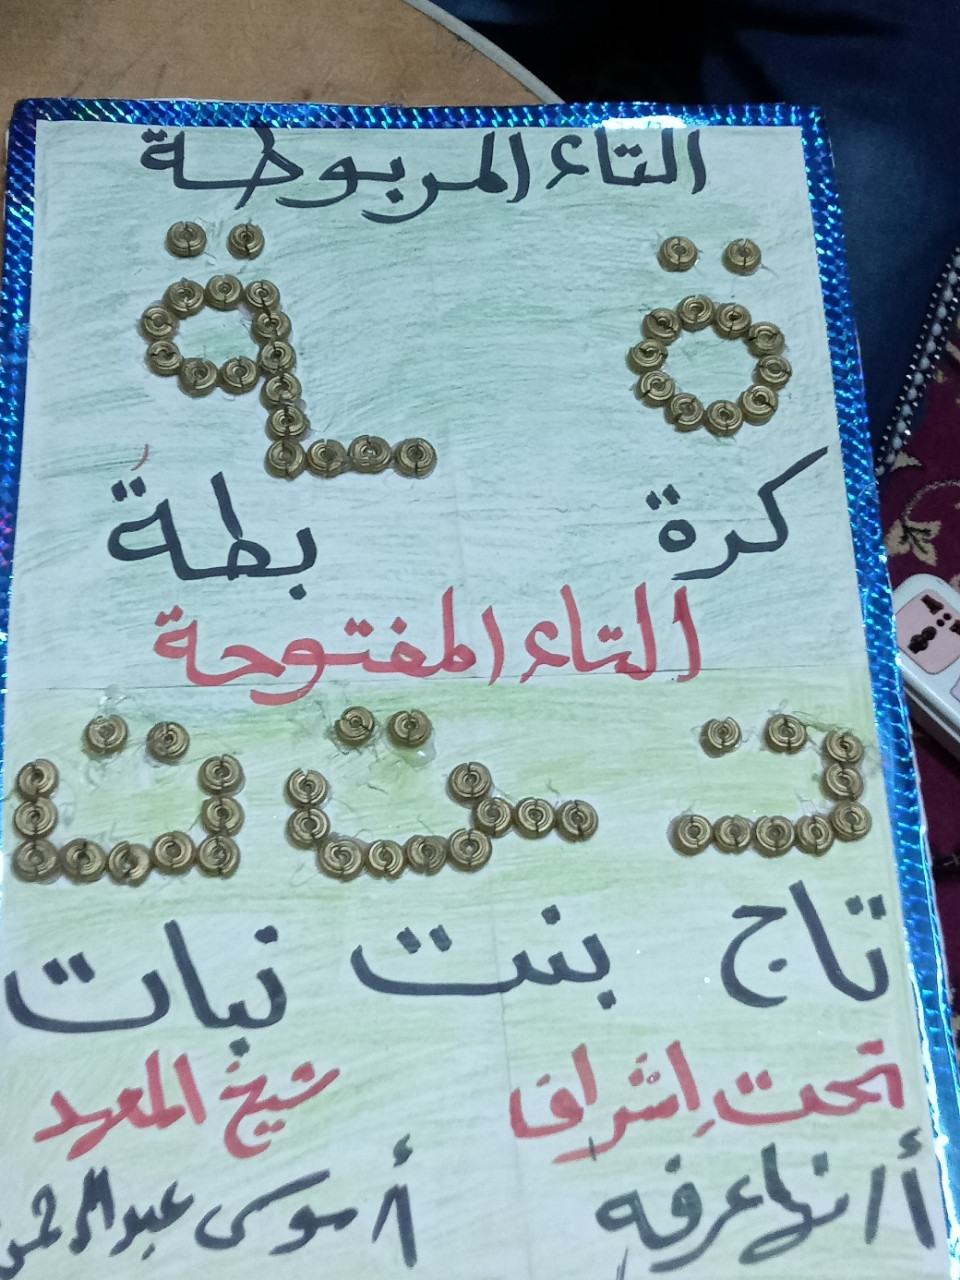 التاء المربوطة
ة ـة
كرة بطة
التاء المفتوحة
تـ ـت ت
تاج بنت نبات
تحت إشراف شيخ المعهد
أ/ نها عرفه أ/ موسى عبد الرحمن